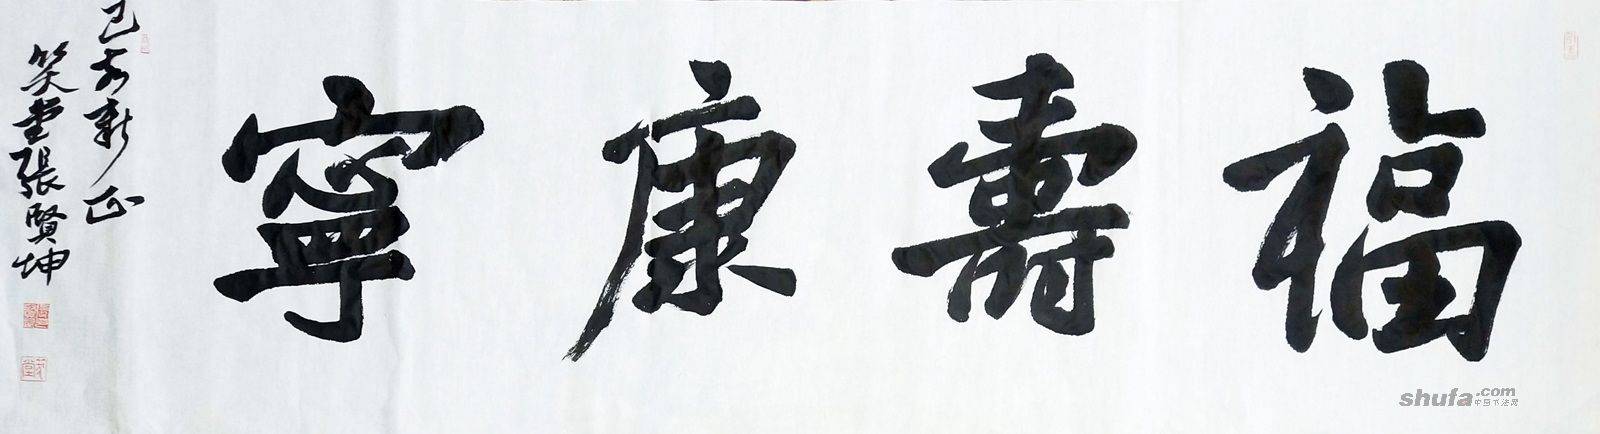 福壽康寧
己亥新正
笑堂張賢坤
shufa.com
中国书法网